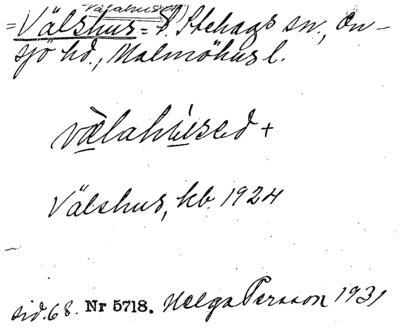 Välahuset)
= Välshus = P. Stehags sn., On-
sjö hd., Malmöhus l.
vælahúsed +
Välshus, kb. 1924
sid. 68. Nr 5718. Helga Persson 1931